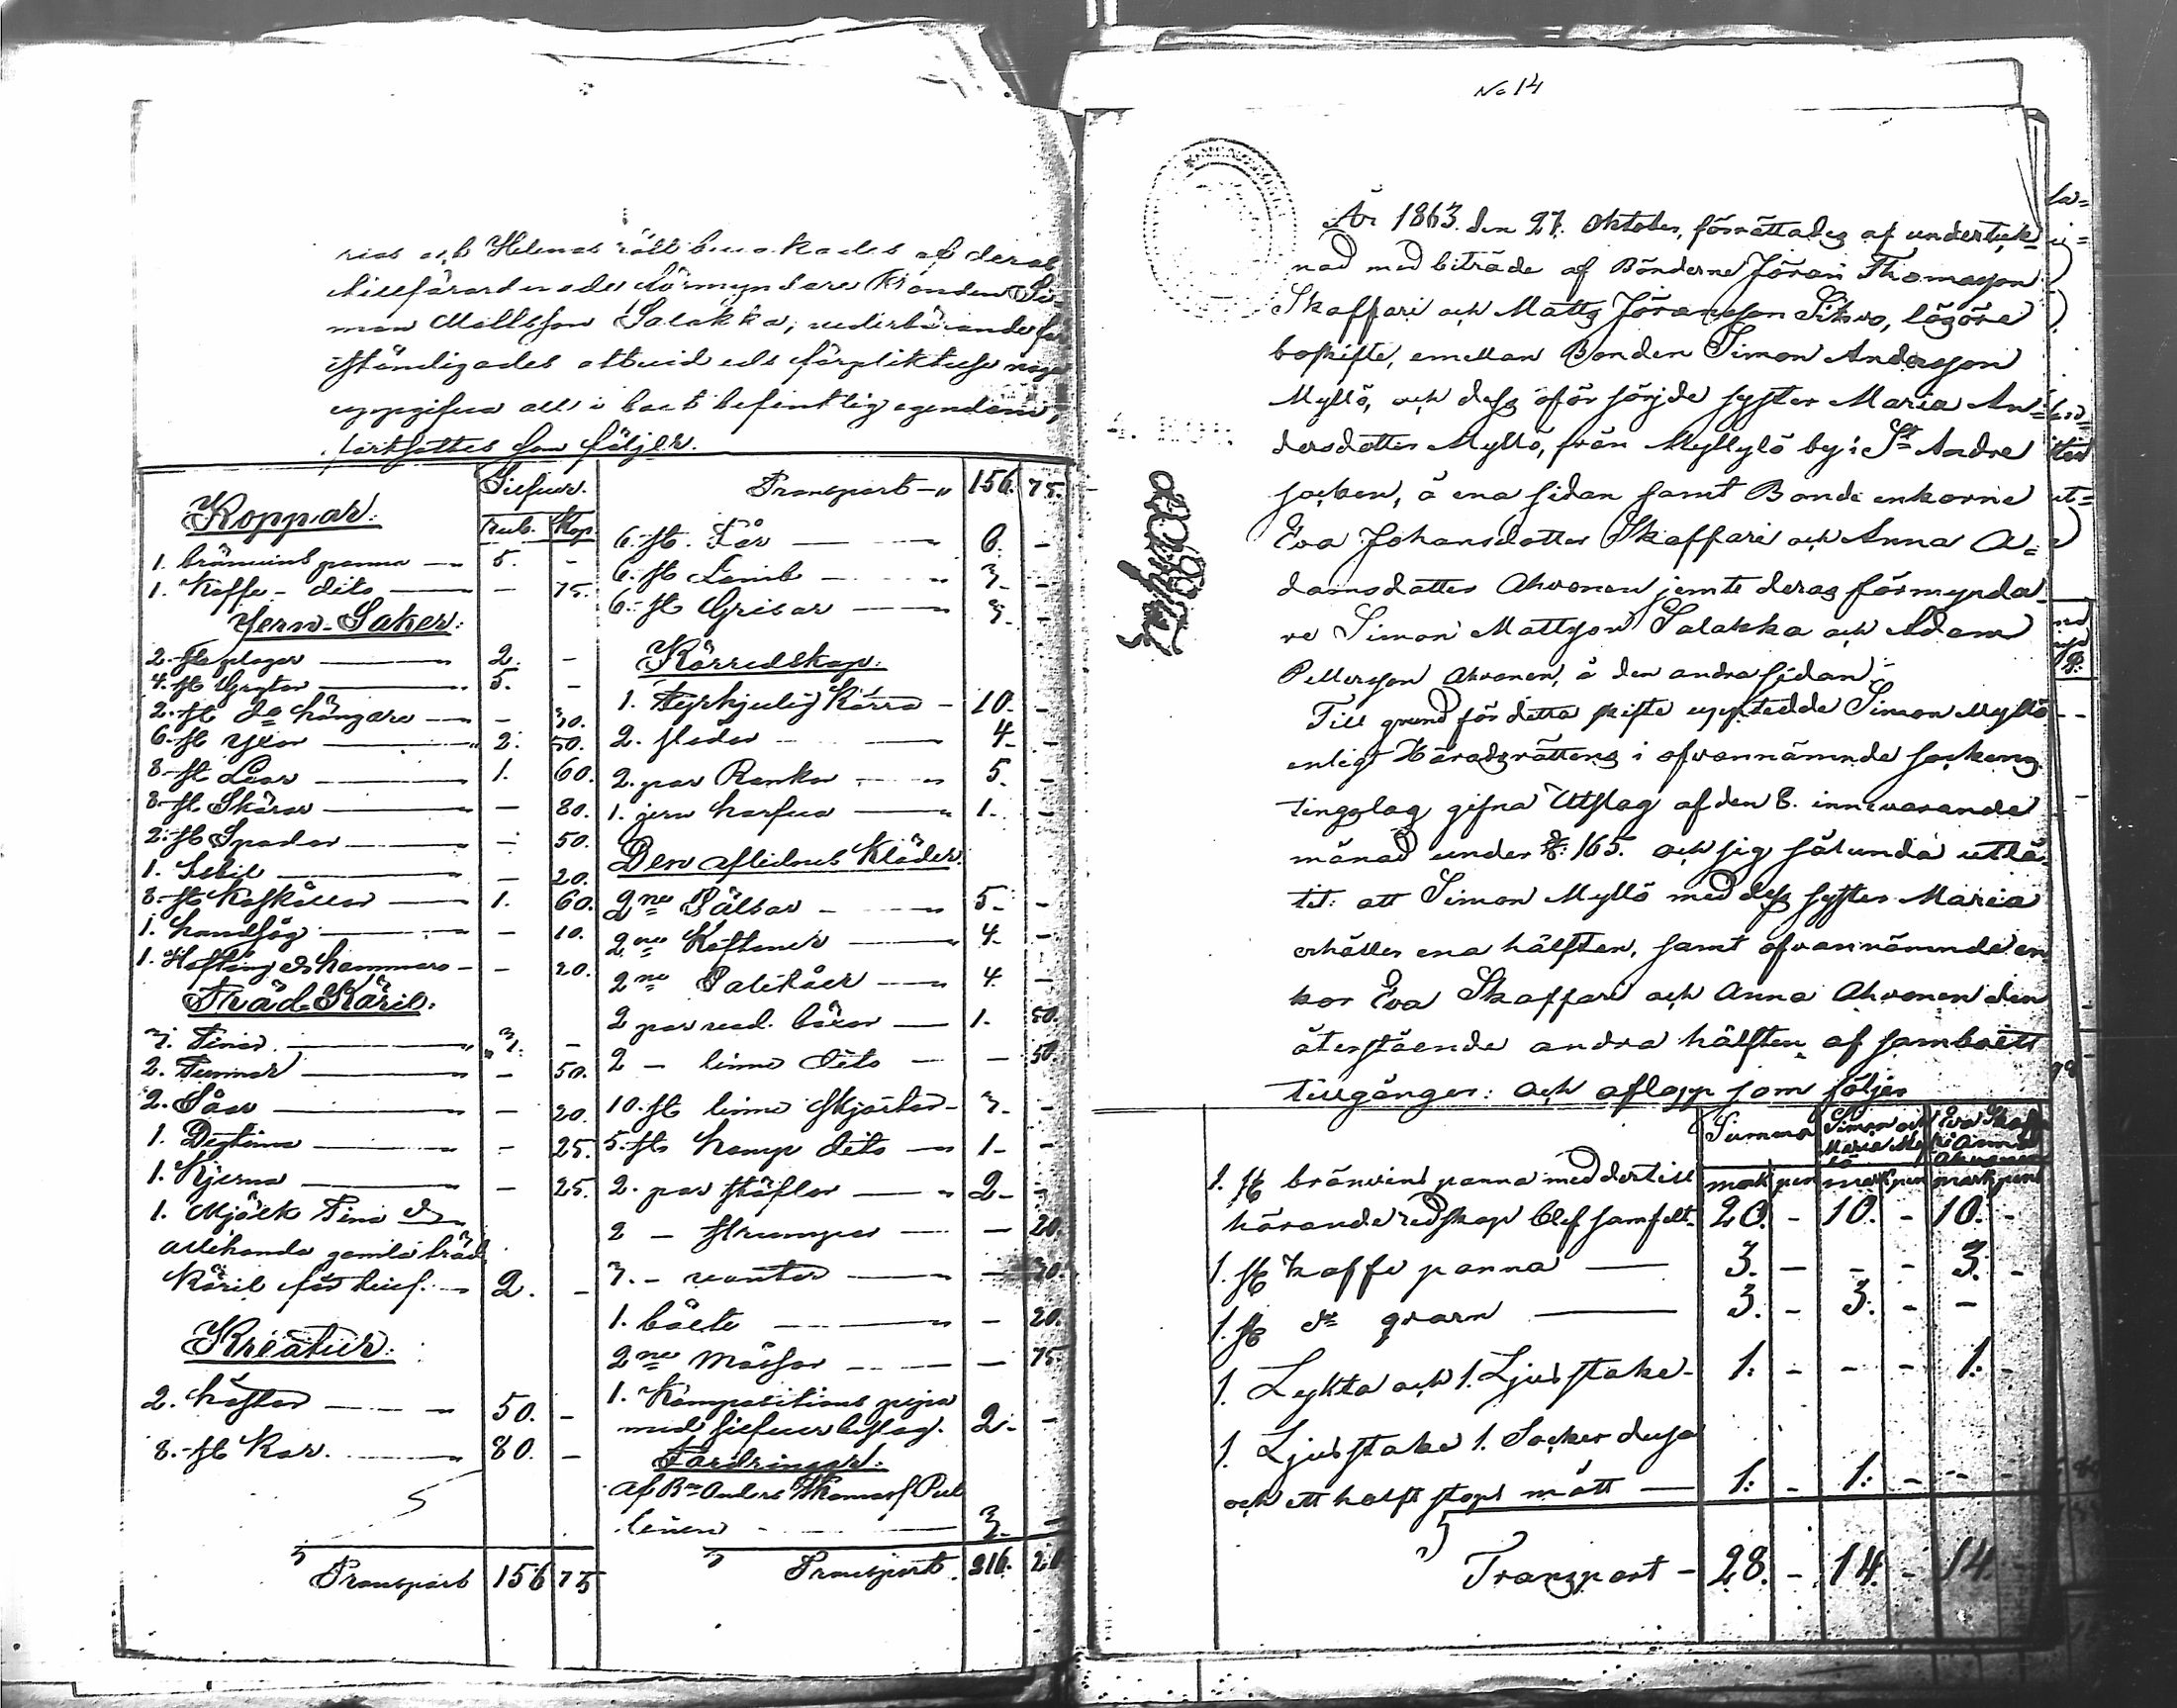 rias och Helenas rätt bevakades af deras
tillförordnade förmyndare Bonden Si-
mon Mattsson Salakka, vederbörande
att vid eds förpliktelse noga
uppgifva all i boet befintlig egendom,
fortsattes som följer.
Silfver.
Koppar. Rub. Kop.
1. bränvins panna — 5. -
1. Kaffe - dito — - 75.
Jern-Saker.
2. st plogar — 2. -
4. st Grytor — 5. -
2. st do hängare — - 30.
6. st yxor — 2. 50.
8. st Liar — 1. 60.
8. st Skäror — - 80.
2. st Spadar — - 50.
1. Sebil — - 20.
8. st — 1. 60.
1. handsåg — - 10.
1. Hoftång & hammare - - 20.
Träd-Käril.
3. Tinor — 3. -
2. Tunnor — - 50.
2. Såar — - 20.
1. Degtina — - 25.
1. Kjerna — - 25.
1. Mjölk Tina &
allehanda gamla träd
Käril för husf. — 2. -
Kreatur.
2. hästar — 50. -
8. st Kor. — 80. -
Transport 156 75
Transport — 156. 75.
6. st. Får — 6. -
6. st Lamb — 3. -
6. st Grisar — 3. -
Körredskap.
1. Fyrhjulig Kärra - 10. -
2. slädar — 4. -
2. par Rankor — 5. -
1. jern harfva — 1. -
Den aflidnes Kläder.
2ne Pälsar — 5. -
2ne Kaftaner — 4. -
2ne Palitåer — 4. -
2 par vad. böxor — 1. 50.
2 - linne dito — - 50.
10. st linne skjortor - 3. -
5. st hamp dito — 1. -
2. par stöflor — 2. -
2 - strumpor — - 20.
3. - vantar — - 30.
1. bälte — - 20.
2ne mössor — - 75.
1. Kompositions pipa
med silfver beslag. 2. -
Fordringar.
Af Bn Anders Thomasf Pul
linen — 3. -
Transport. 216. 20
No 14
År 1863. den 27. Oktober, förrättades af underteck-
nad med biträde af Bönderne Jöran Thomasson
Skaffari och Matts Jöransson Sihvo, lösöre
boskifte, emellan Bonden Simon Andersson
Myllö, och dess oförsörjde syster Maria An-
dersdotter Myllö, från Myllylö by i St Andre
socken, å ena sidan samt Bonde enkorne
Eva Johansdotter Skaffari och Anna A-
damsdotter Ahvonen jemte deras förmynda-
re Simon Mattsson Salakka och Adam
Pettersson Ahvonen, å den andra sidan.
Till grund för detta skifte upptedde Simon Myllö
enligt Häradsrättens i ofvannämnde sockens
tingslag gifna Utslag af den 8. innevarande
månad under № 165. och sig sålunda utlå-
tit: att Simon Myllö med dess syster Maria
erhåller ena hälften, samt ofvannämnde en
kor Eva Skaffari och Anna Ahvonen den
återstående andra hälften af samboets
tillgånger: och aflopp som följer
Summa Simon och Maria Myllö Eva Skaffari Anna Ahvonen
mark pen mark pen mark pen
1. st bränvins panna med dertill
hörande redskap blef samfelt. 20. - 10. - 10. -
1. st kaffe panna — 3. - - - 3. -
1. st do qvarn — 3. - 3. - -
1. Lykta och 1. Ljusstake - 1. - - - 1. -
1. Ljusstake 1. Socker dosa
och ett halft stops mått — 1. - 1. - - -
Transport - 28. - 14. - 14.